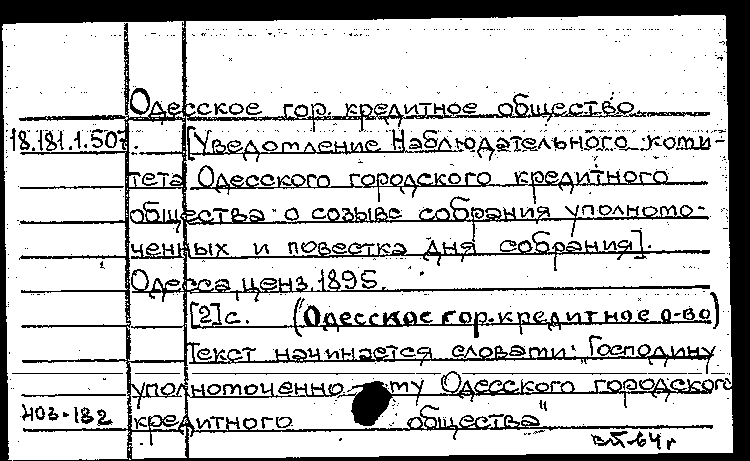 Одесское гор. кредитное общество.
18.181.1.507. [Уведомление Наблюдательного коми-
тета Одесского городского кредитного
общества о созыве собрания уполномо-
ченных и повестка дня собрания].
Одесса, ценз. 1895.
[2]с. (Одесское гор. кредитное о-во)
Текст начинается словами: "Господину
уполномоченно-му Одесского городского
403-132 кредитного общества"